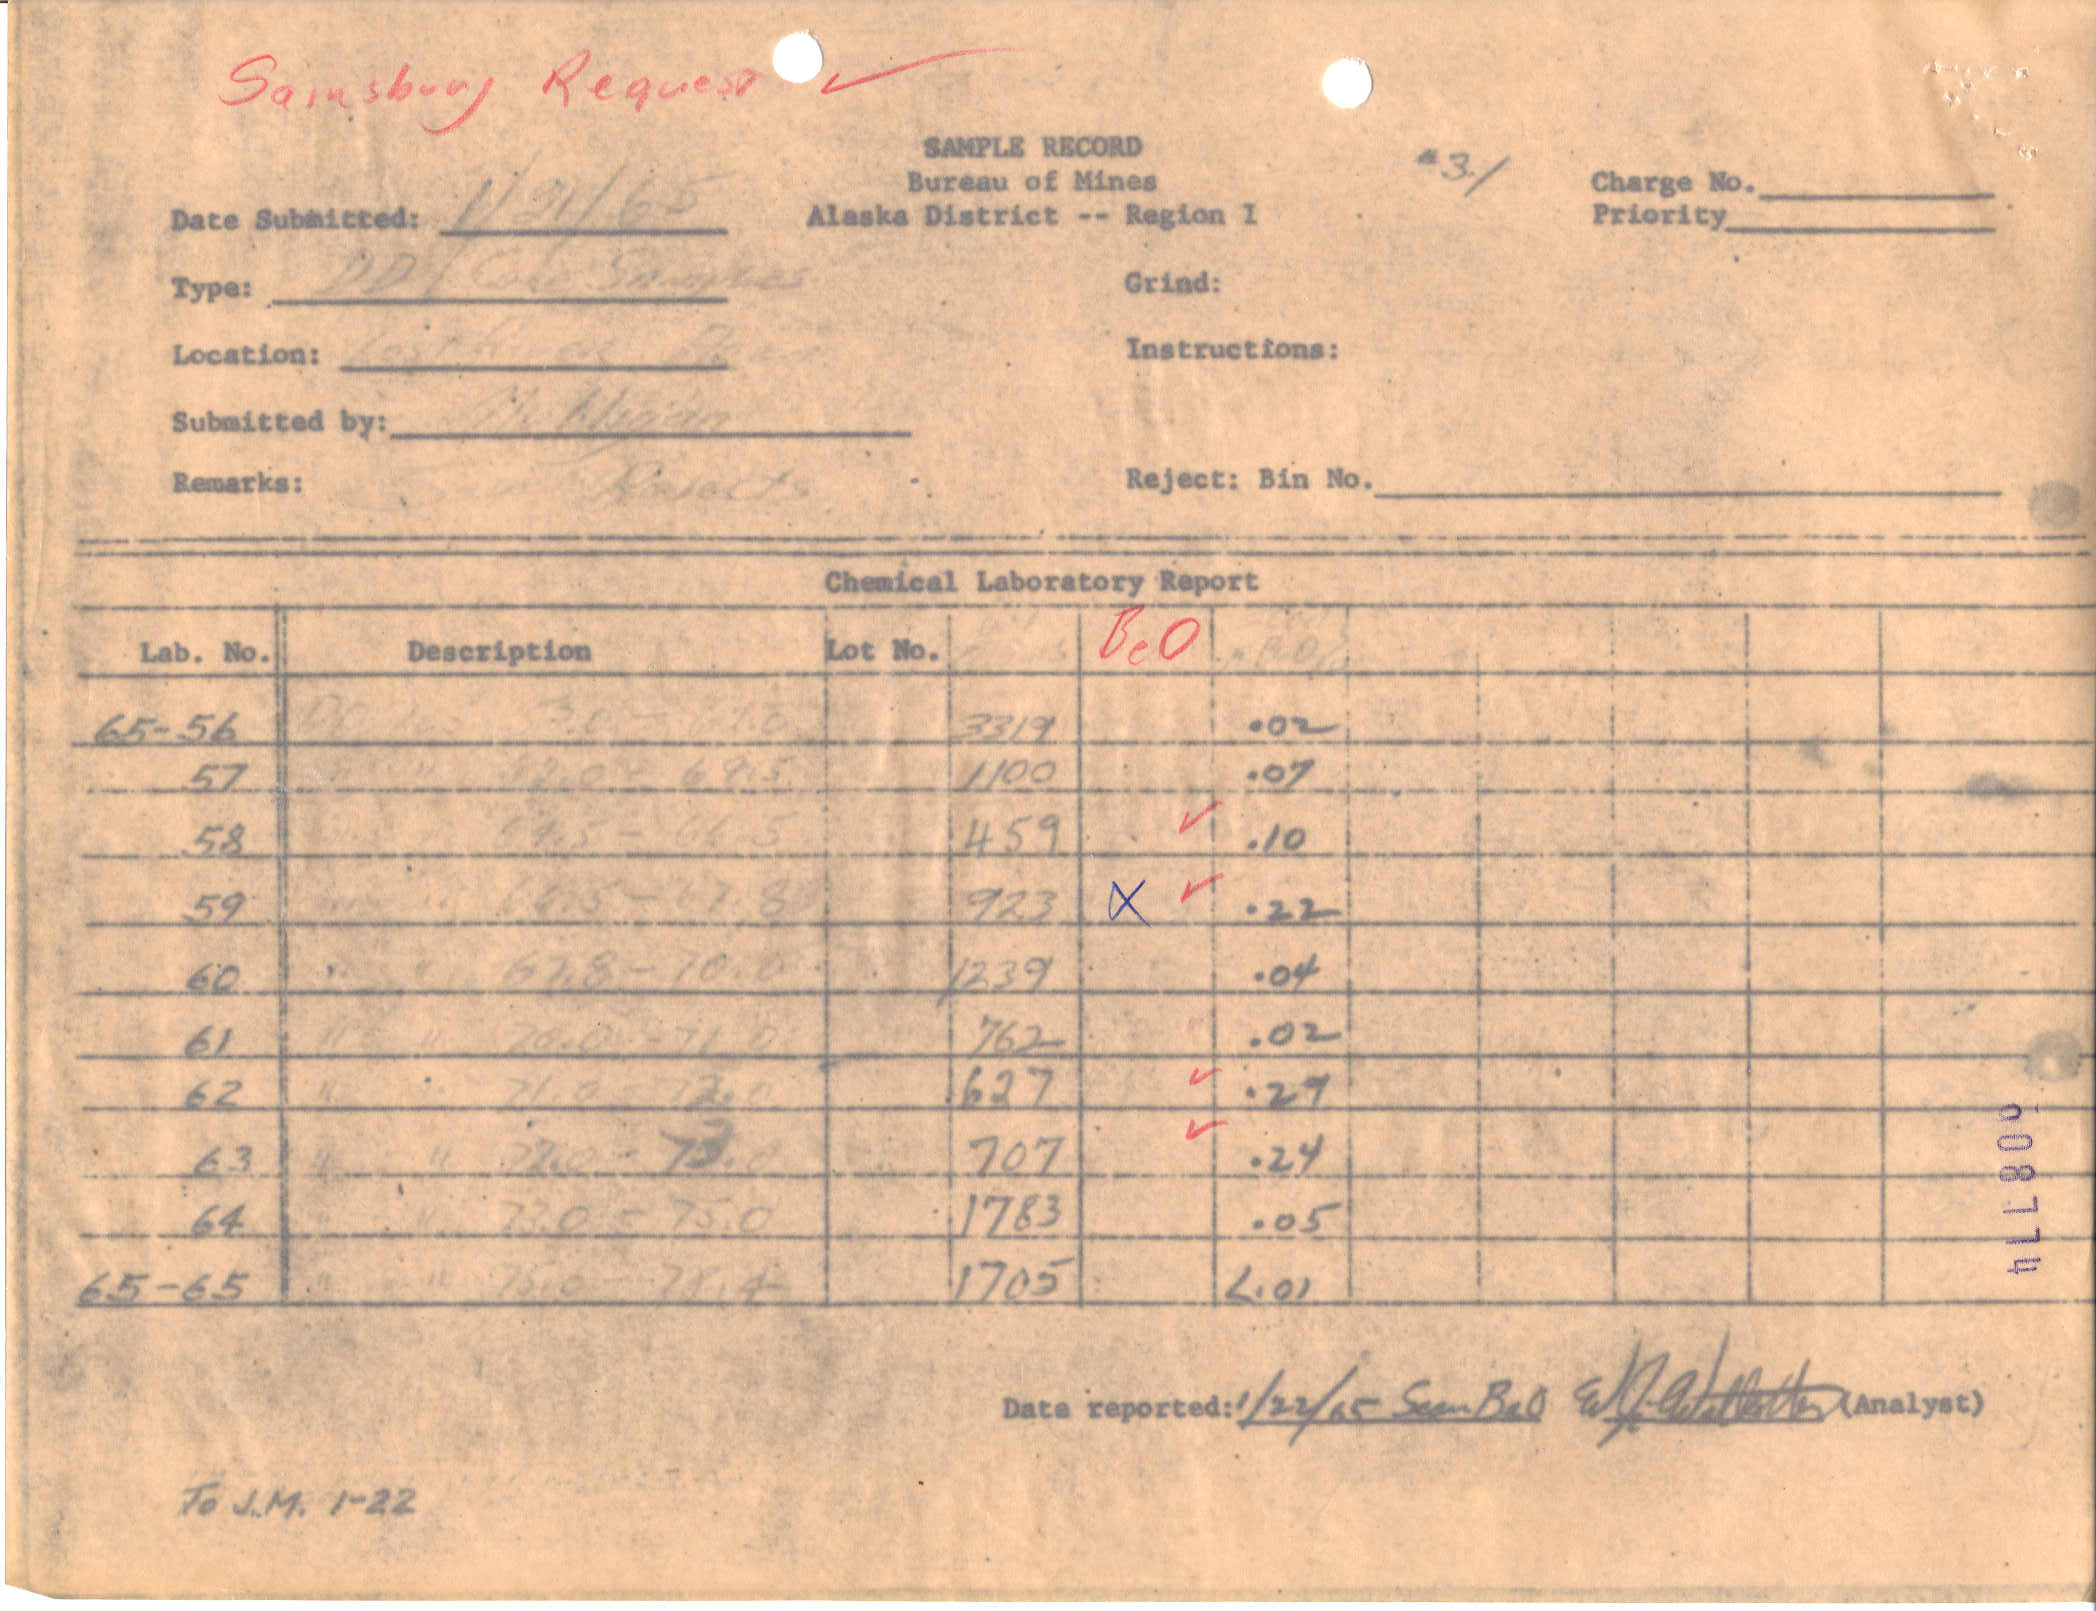 Sainsbury Request ✓
SAMPLE RECORD
Bureau of Mines
Alaska District -- Region I
#31
Charge No.
Priority
Date Submitted: 1/21/65
Type: DDH Core Samples
Grind:
Location: Lost River
Instructions:
Submitted by: Mulligan
Remarks: Rejects
Reject: Bin No.
Chemical Laboratory Report
Lab. No. Description Lot No. BeO
65-56 3319 .02
57 " " 62.0 - 64.5 1100 .07
58 64.5 - 66.5 459 ✓ .10
59 " " 66.5 - 67.8 923 X ✓ .22
60 " " 67.8 - 70.0 1239 .04
61 " " 70.0 - 71.0 762 .02
62 " 71.0 - 72.0 627 ✓ .29
63 " " 72.0 - 73.0 707 ✓ .24
64 " " 73.0 - 75.0 1783 .05
65-65 " " 75.0 - 1705 <.01
Date reported: 1/22/65 BeO (Analyst)
To J.M. 1-22
008774